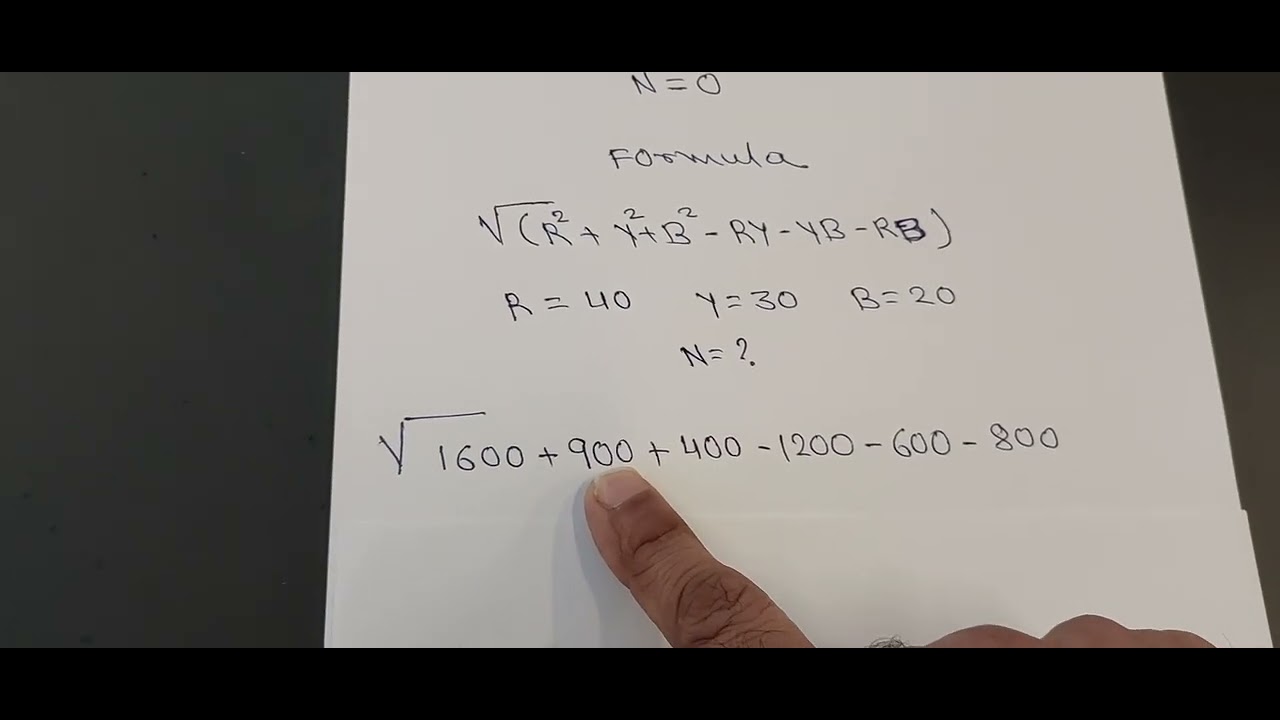 N=0
Formula
√(R²+Y²+B²-RY-YB-RB)
R=40 Y=30 B=20
N=?
√1600+900+400-1200-600-800